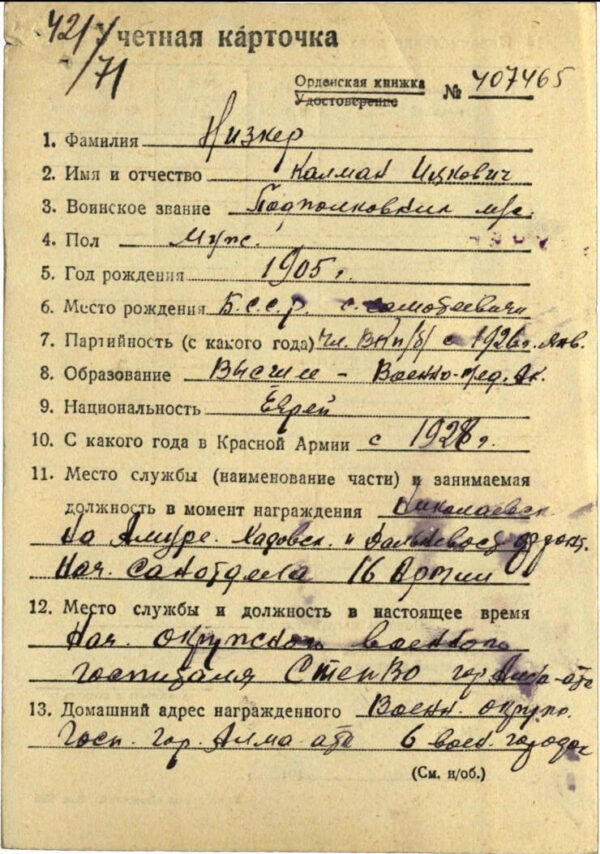 42/у Учетная карточка
/71
Орденская книжка
Удостоверение № 407465
1. Фамилия Низкер
2. Имя и отчество Калман Ицкович
3. Воинское звание Подполковник м/с.
4. Пол Муж.
5. Год рождения 1905 г.
6. Место рождения Б.С.С.Р. с. Самотеевичи
7. Партийность (с какого года) Чл. ВКП/б/ с 1926 г. Янв.
8. Образование Высшее - Военно-мед. Ак.
9. Национальность Еврей
10. С какого года в Красной Армии с 1928 г.
11. Место службы (наименование части) и занимаемая
должность в момент награждения Николаевск
на Амуре.
Нач. санотдела 16 Армии
12. Место службы и должность в настоящее время
Нач. окружного военного
госпиталя СтепВО гор. Алма-ата
13. Домашний адрес награжденного Военн. окружн.
Госп. гор. Алма ата 6 воен. городок
(См. н/об.)